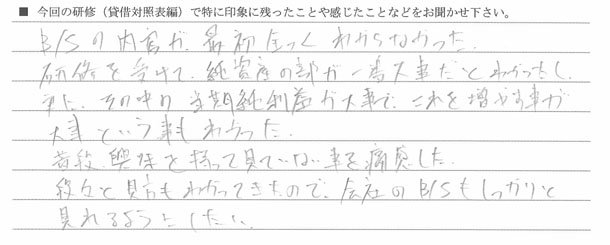 ■ 今回の研修（貸借対照表編）で特に印象に残ったことや感じたことなどをお聞かせ下さい。
B/Sの内容が、最初全っくわからなかった。
研修を受けて、純資産の部が一番大事だとわかったし、
又に、その中の当期純利益が大事で、これを増やす事が
大事という事もわかった。
普段、興味を持って見ていない事を痛感した。
段々と見方もわかってきたので、会社のB/Sもしっかりと
見れるようにしたい。